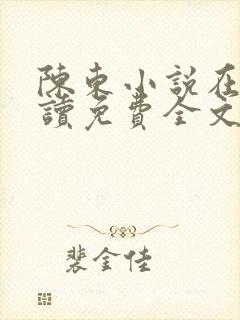 陳東小說在
讀免費全文
裴金佳